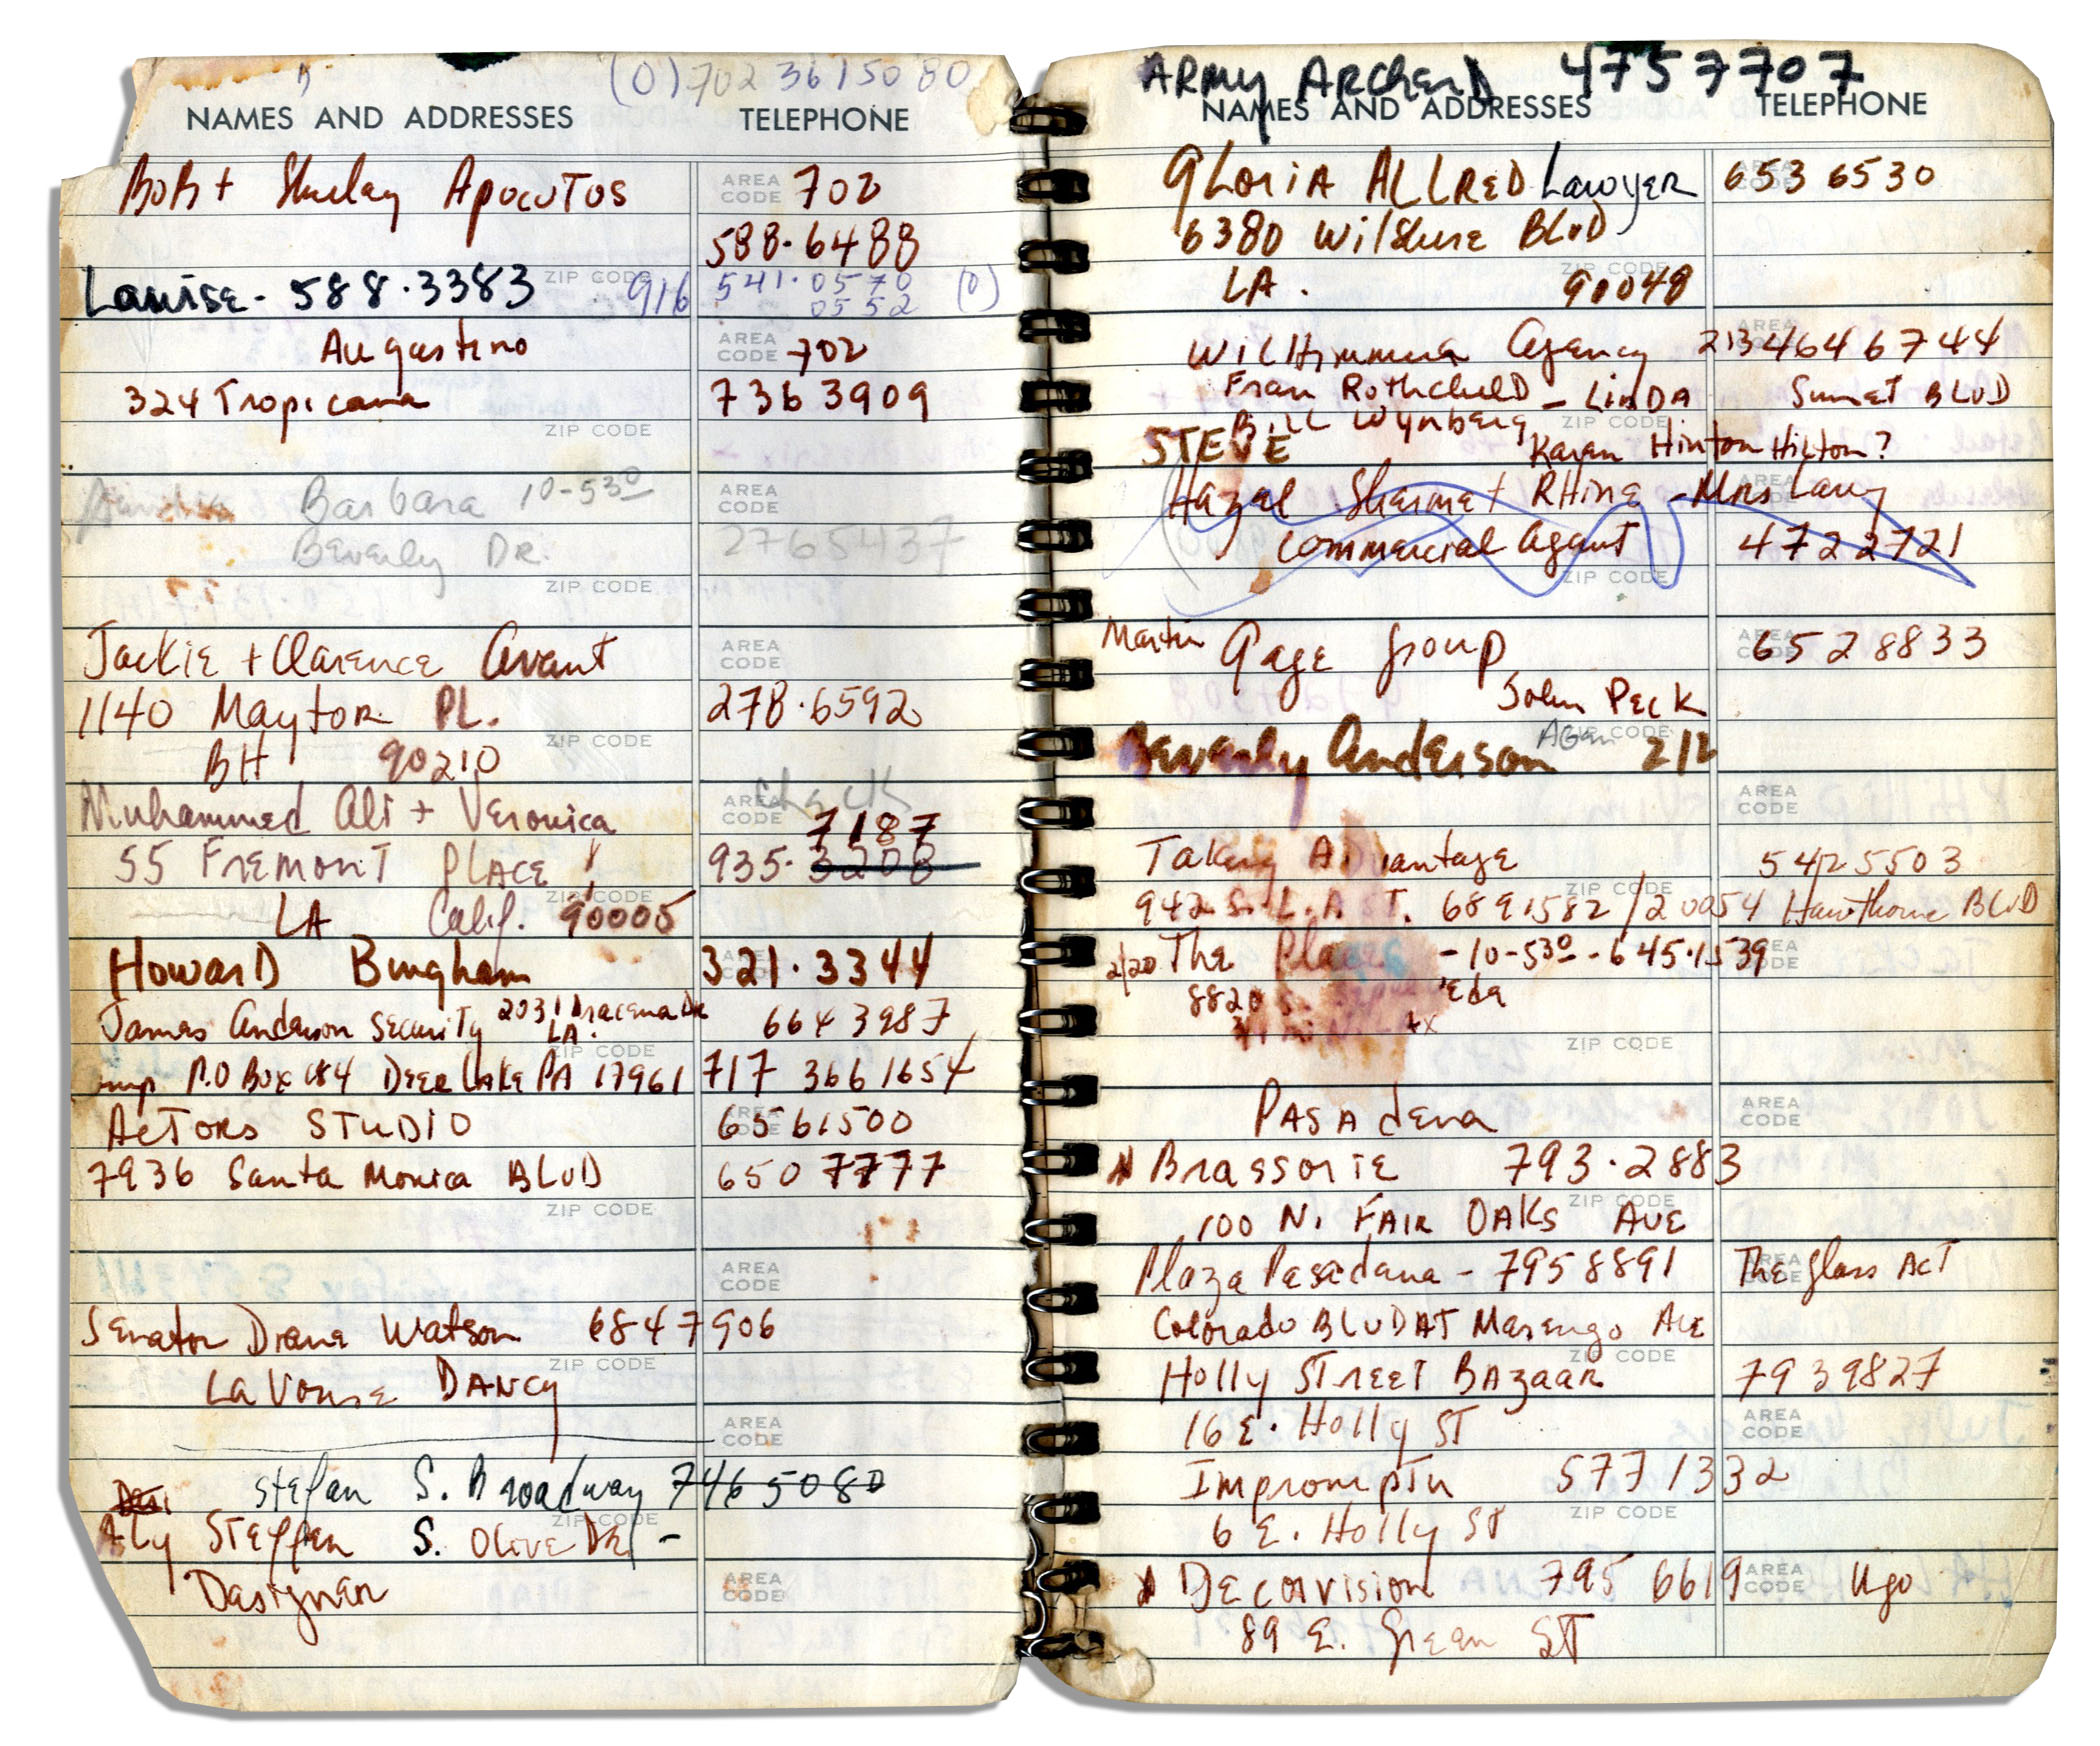 (0) 702 361 5080
NAMES AND ADDRESSES TELEPHONE
BOB + Shirley Apocotos AREA CODE 702
588.6488
Louise - 588.3383 ZIP CODE 916 541.0570
0552 (0)
Augustino AREA CODE 702
324 Tropicana 736 3909
ZIP CODE
Barbara 10-530 AREA CODE
Beverly DR. 2765437
ZIP CODE
Jackie + Clarence Avant AREA CODE
1140 Maytor PL. 278.6592
BH 90210 ZIP CODE
check
Muhammed Ali + Veronica AREA CODE 7187
55 Fremont PLACE 935.3208
LA Calif. 90005 ZIP CODE
Howard Bingham AREA CODE 321.3344
James Anderson Security 2031 Dracena DR LA. 664 3987
ZIP CODE
P.O Box 184 Deer Lake PA 17961 717 366 1654
ACTORS STUDIO AREA CODE 6561500
7936 Santa Monica BLVD 650 7777
ZIP CODE
AREA CODE
Senator Diane Watson 6847906
ZIP CODE
LaVonne DANCY
AREA CODE
Stefan S. Broadway 7465080
Aly Steffen S. Olive DR - ZIP CODE
Designer AREA CODE
ARMY ARCHERD 4757707
NAMES AND ADDRESSES TELEPHONE
GLORIA ALLRED Lawyer AREA CODE 653 6530
6380 Wilshire BLVD
LA. 90048 ZIP CODE
Agency AREA CODE 213 464 6744
Fran Rothchild - LINDA Sunset BLVD
Bill Wynberg ZIP CODE
STEVE Karen Hinton Hilton?
Hazel Sharmet RHine - Mrs Larry AREA CODE
commercial Agent 4722721
ZIP CODE
Martin Gage Group AREA CODE 652 8833
John Peck
Beverly Anderson Agen ZIP CODE 212
AREA CODE
Taking Advantage 542 5503
942 S. L.A ST. 6891582 / 20054 Hawthorne BLVD
ZIP CODE
2/20 The Place - 10-530 - 645.1539 AREA CODE
8820 S.
ZIP CODE
PASAdena AREA CODE
Brassorie 793.2883
100 N. FAIR OAKS AVE ZIP CODE
Plaza Pasadena - 7958891 The Glass ACT AREA CODE
Colorado BLVD AT Marengo Ave
ZIP CODE
Holly STREET BAzaar 7939827
16 E. Holly ST AREA CODE
Impromptu 577 1332
6 E. Holly ST ZIP CODE
Decorvision 795 6619 AREA CODE Ugo
89 E. Green ST